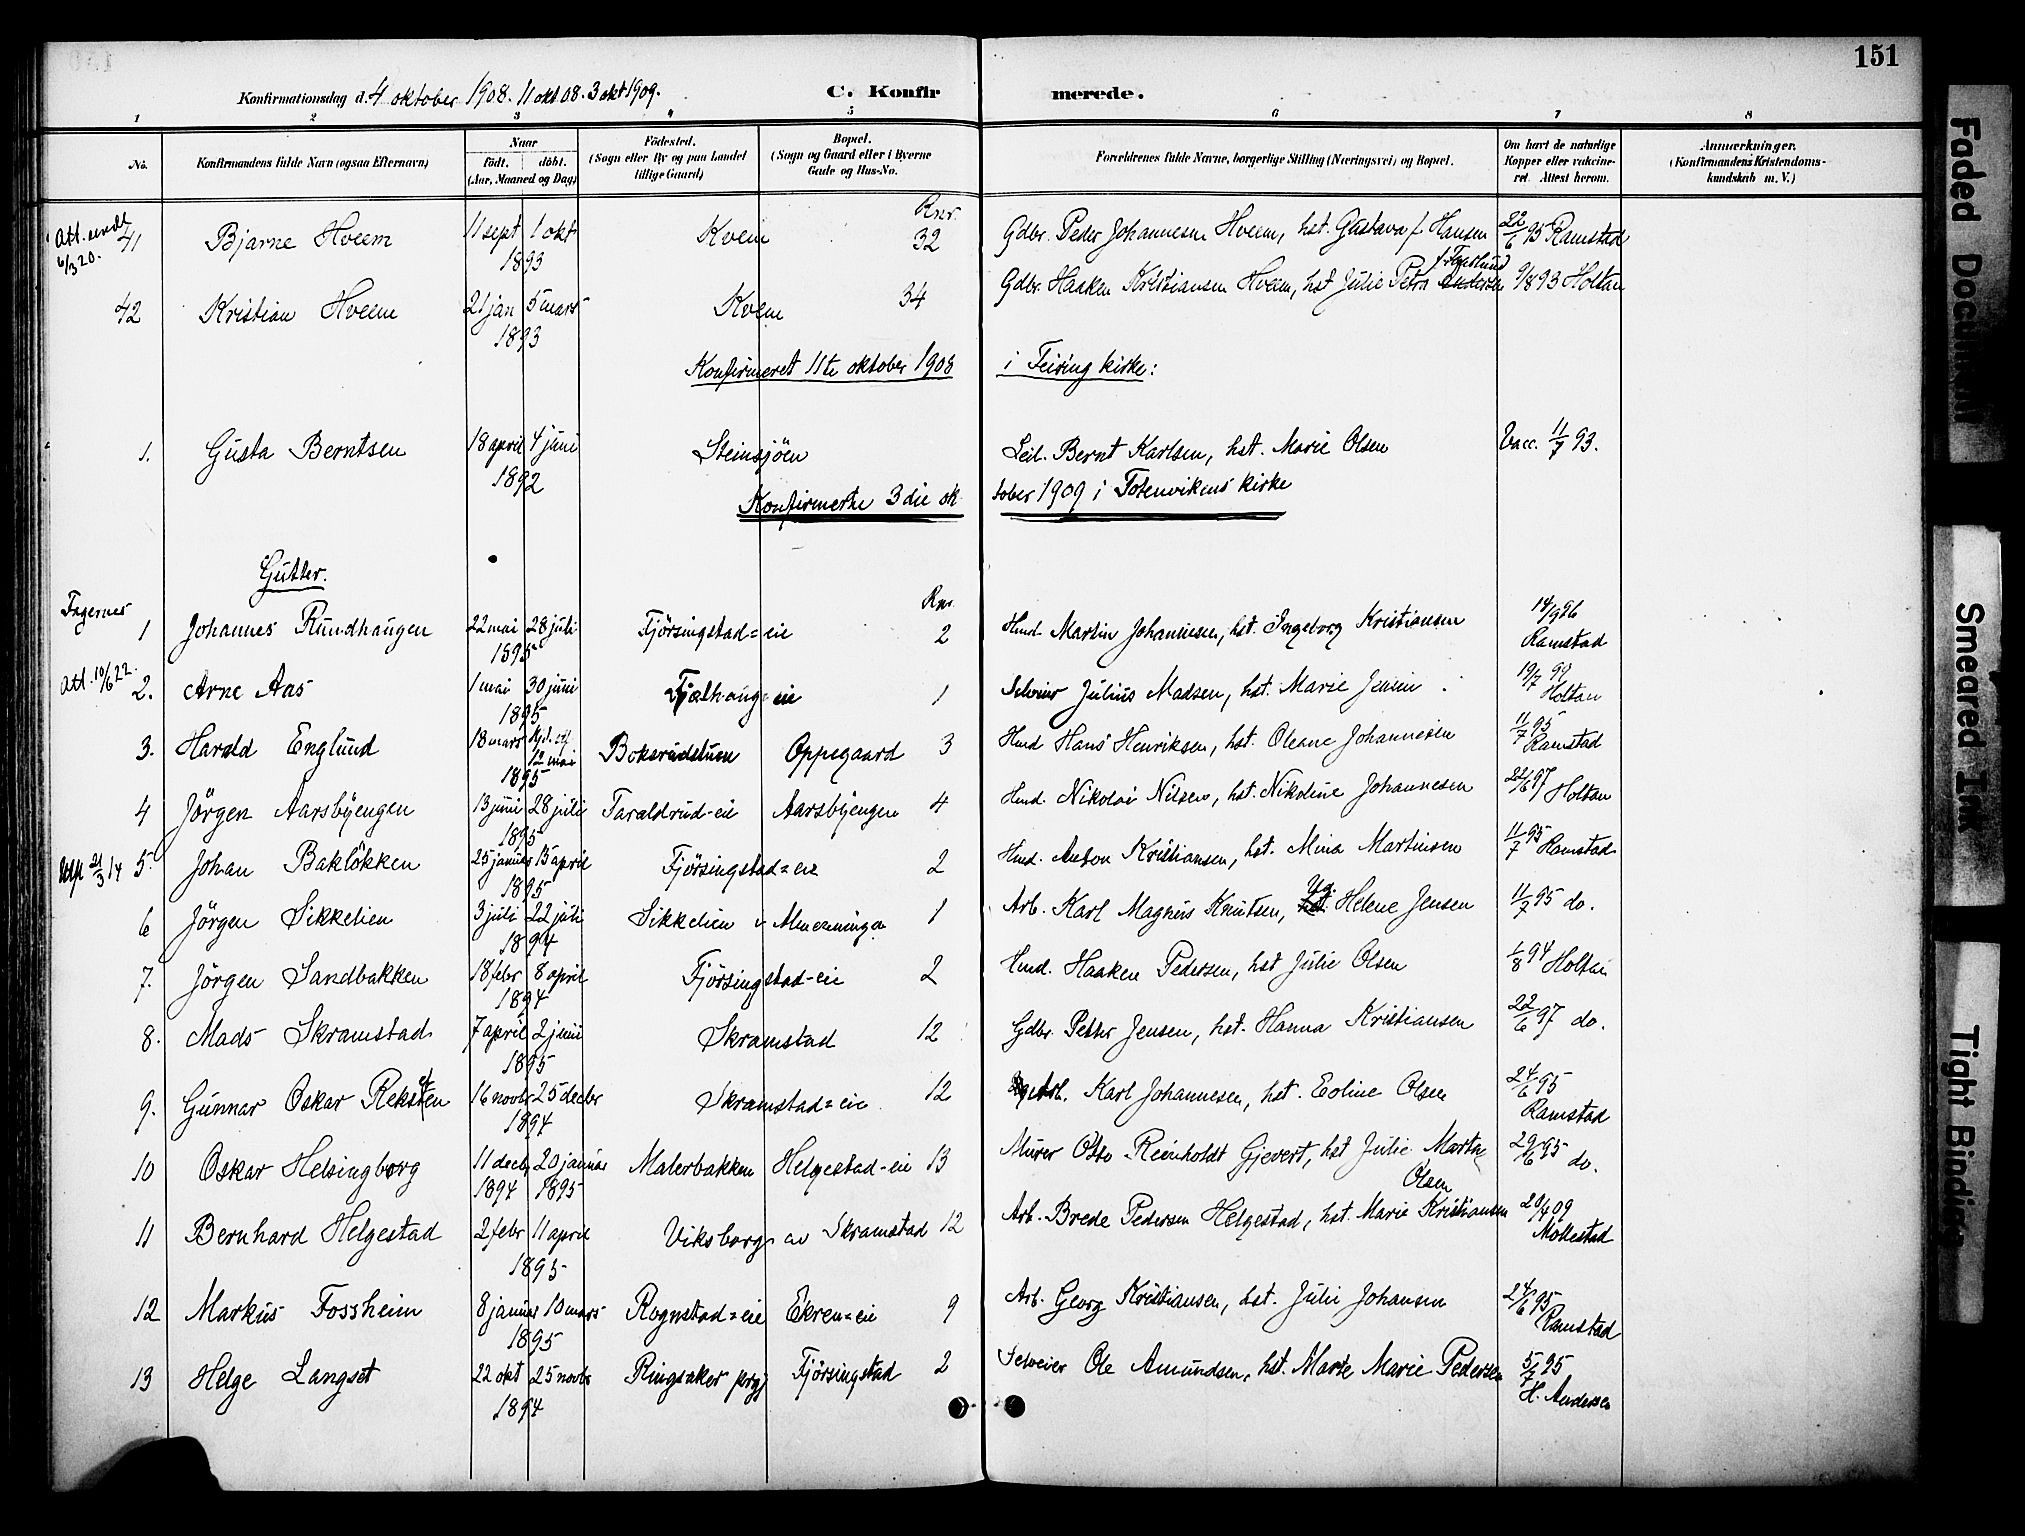 151
Konfirmationsdag d. 4 oktober 1908. 11 okt 08. 3 okt 1909.
C. Konfirmerede.
1 2 3 4 5 6 7 8
No.
Konfirmandens fulde Navn (ogsaa Efternavn)
Naar
født. døbt.
(Aar, Maaned og Dag)
Fødested.
(Sogn eller By og paa Landet
tillige Gaard)
Bopæl.
(Sogn og Gaard eller i Byerne
Gade og Hus-No.
Forældrenes fulde Navne, borgerlige Stilling (Næringsvei) og Bopæl.
Om havt de naturlige
Kopper eller vakcine-
ret. Attest herom.
Anmærkninger.
(Konfirmandens Kristendoms-
kundskab m. V.)
Att. sendt 6/3 20.
Rnr.
41 Bjarne Hveem 11 sept 1 okt 1893 Kvem 32 Gdbr. Peder Johannesen Hveem, hst. Gustava f. Hansen 22/6 95 Ramstad
42 Kristian Hveem 21 jan 5 mars 1893 Kvem 34 Gdbr. Haaken Kristiansen Hveem, hst Julie Petra 9/8 93 Holtan
Konfirmeret 11te oktober 1908 i Feiring kirke:
1. Gusta Berntsen 18 april 4 juni 1892 Steinsjöen Leil. Bernt Karlsen, hst. Marie Olsen Vacc. 11/7 93.
Konfirmerte 3die oktober 1909 i Totenvikens kirke
Gutter.
Fagernes
Rnr.
1 Johannes Rundhaugen 22 mai 28 juli 1895 Fjörsingstad=eie 2 Hmd. Martin Johannesen, hst. Ingeborg Kristiansen 14/9 96 Ramstad
Att. 10/6 22.
2. Arne Aas 1 mai 30 juni 1895 Fjælhaug=eie 1 Julius Madsen, hst. Marie Jensen 19/7 99 Holtan
3. Harald Englund 18 mars 12 mai 1895 Boksrudstuen Oppegaard 3 Hmd Hans Henriksen, hst. Oleane Johannesen 11/7 95 Ramstad
4 Jörgen Aarsbyengen 13 juni 28 juli 1895 Taraldrud-eie Aarsbyengen 4 Hmd. Nikolai Nilsen, hst. Nikoline Johannesen 22/6 97 Holtan
21/3 14
5. Johan Baklökken 25 januar 15 april 1895 Fjörsingstad=eie 2 Hmd. Anton Kristiansen, hst. Mina Martinsen 11/7 95 Ramstad
6 Jörgen Sikkelien 3 juli 22 juli 1894 Sikkelien v Almenningen 1 Arb. Karl Magnus Knutsen, Helene Jensen 11/7 95 do.
7. Jörgen Sandbakken 18 febr 8 april 1894 Fjörsingstad-eie 2 Hmd. Haaken Pedersen, hst Julie Olsen 1/8 94 Holtan
8. Mads Skramstad 7 april 2 juni 1895 Skramstad 12 Gdbr. Petter Jensen, hst. Hanna Kristiansen 22/6 97 do.
9. Gunnar Oskar Reksten 16 novbr 25 decbr 1894 Skramstad=eie. 12 Arb. Karl Johannesen, hst. Eoline Olsen 24/6 95 Ramstad
10 Oskar Helsingborg 11 decbr 1894 20 januar 1895 Malerbakken Helgestad-eie 13 Murer Otto Reinholdt Gjevert, hst Julie Marthe Olsen 29/6 95 do.
11 Bernhard Helgestad 2 febr 11 april 1895 Viksborg av Skramstad 12 Arb. Brede Pedersen Helgestad, hst. Marie Kristiansen 20/4 09 Mollestad
12 Markus Fossheim 8 januar 10 mars 1895 Rognstad=eie Ekren=eie 9 Arb. Georg Kristiansen, hst. Julie Johansen 24/6 95 Ramstad
13 Helge Langset 22 okt 25 novbr 1894 Ringsaker prgj Fjörsingstad 2 Sveiser Ole Amundsen, hst. Marte Marie Pedersen 5/7 95 H. Andersen
Faded Document
Smeared Ink
Tight Binding